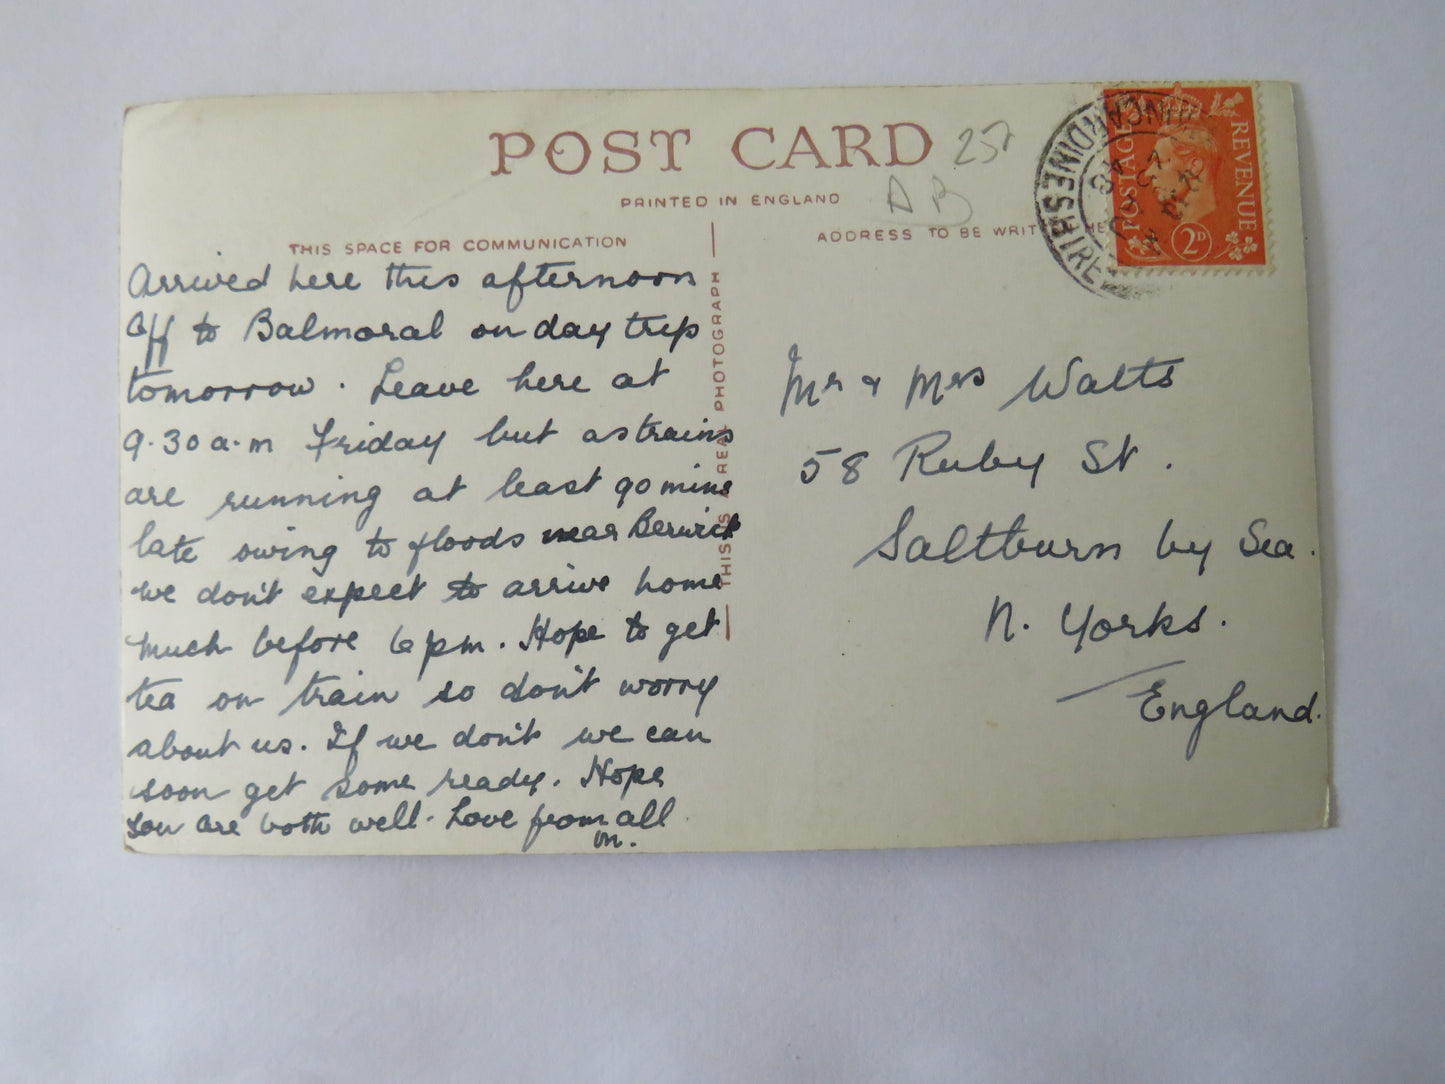 POST CARD
257
PRINTED IN ENGLAND
A B
THIS SPACE FOR COMMUNICATION
ADDRESS TO BE WRIT HE
Arrived here this afternoon
off to Balmoral on day trip
tomorrow. Leave here at
9.30 a.m Friday but as trains
are running at least 90 mins
late owing to floods near Berwick
we don't expect to arrive home
much before 6 pm. Hope to get
tea on train so don't worry
about us. If we don't we can
soon get some ready. Hope
you are both well. Love from all
m.
THIS IS A REAL PHOTOGRAPH
Mr & Mrs Watts
58 Ruby St.
Saltburn by Sea.
N. Yorks.
England.
POSTAGE
REVENUE
2D
KINCARDINESHIRE
48